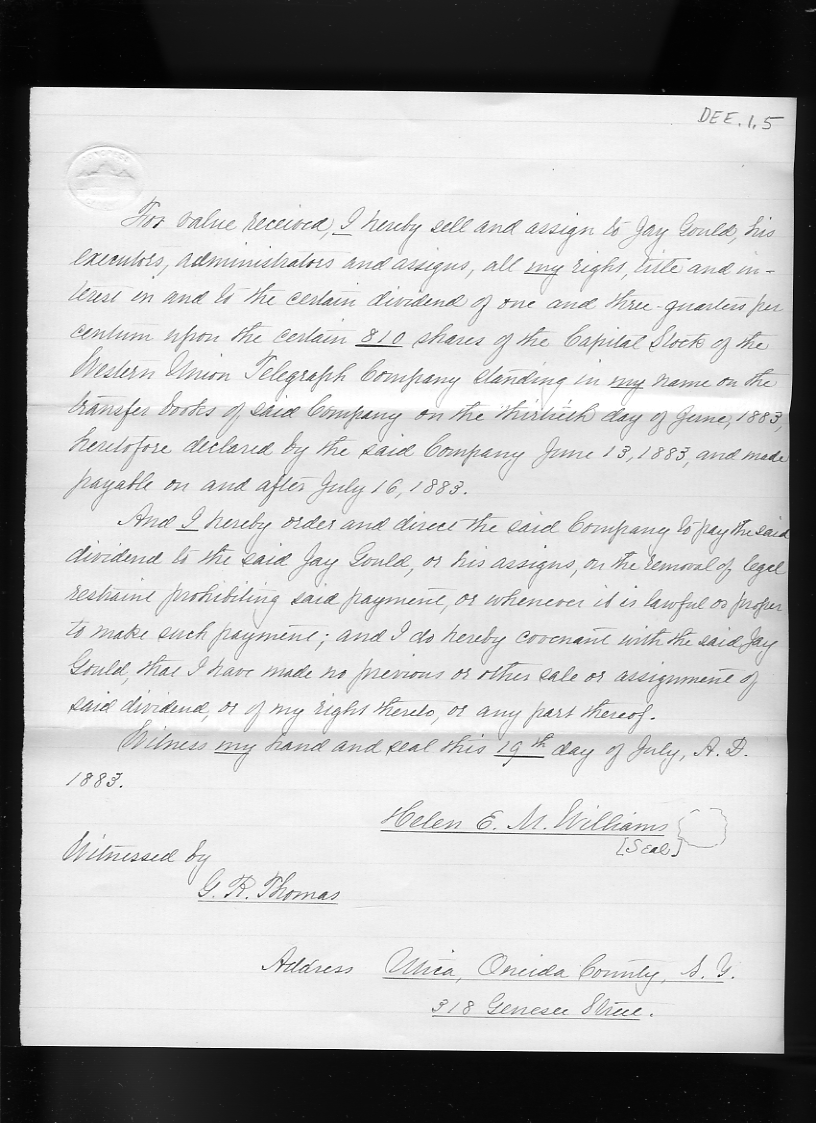 DEE.1.5
CONGRESS
For value received, I hereby sell and assign to Jay Gould, his
executors, administrators and assigns, all my right, title and in-
terest in and to the certain dividend of one and three-quarters per
centum upon the certain 810 shares of the Capital Stock of the
Western Union Telegraph Company standing in my name on the
transfer books of said Company on the thirtieth day of June, 1883,
heretofore declared by the said Company June 13, 1883, and made
payable on and after July 16, 1883.
And I hereby order and direct the said Company to pay the said
dividend to the said Jay Gould, or his assigns, on the removal of legal
restraint prohibiting said payment, or whenever it is lawful or proper
to make such payment; and I do hereby covenant with the said Jay
Gould, that I have made no previous or other sale or assignment of
said dividend, or of my right thereto, or any part thereof.
Witness my hand and seal this 19th day of July, A.D.
1883.
Helen E. M. Williams
[Seal]
Witnessed by
G. R. Thomas
Address Utica, Oneida County, N. Y.
318 Genesee Street.